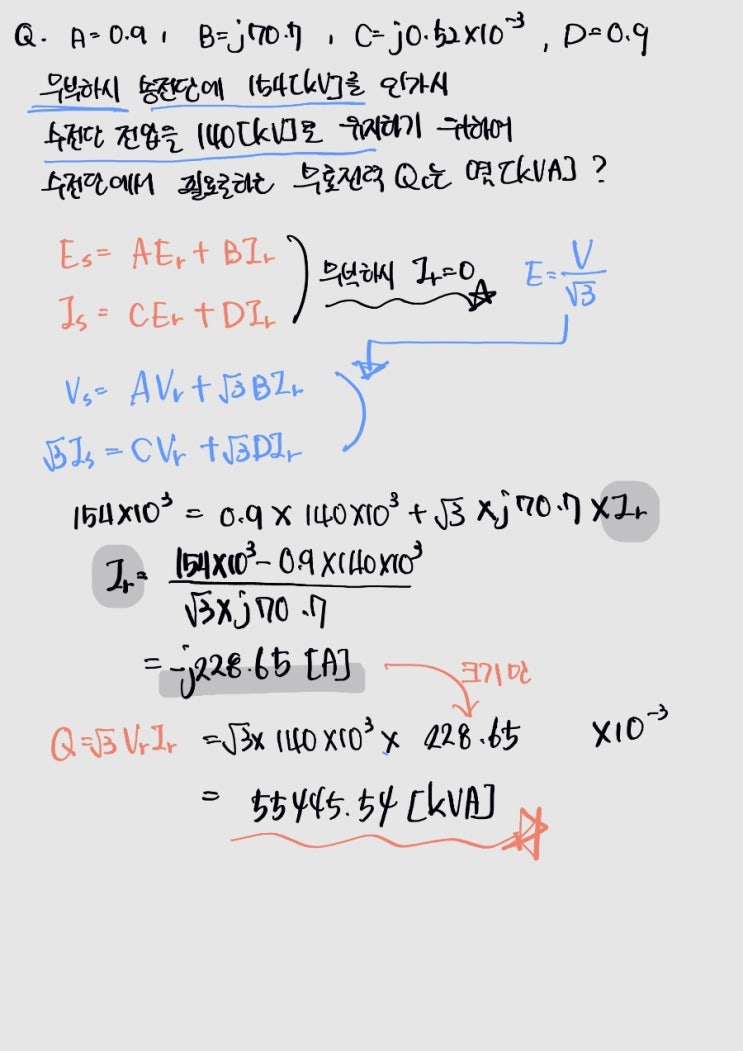 Q. A=0.9, B=j70.7, C=j0.52×10⁻³, D=0.9
무부하시 송전단에 154[kV]를 인가시
수전단 전압을 140[kV]로 유지하기 위하여
수전단에서 필요로하는 무효전력 Qc는 몇[kVA]?
Es = AEr + BIr
무부하시 Ir=0
E=V/√3
Is = CEr + DIr
Vs= AVr + √3BIr
√3Is = CVr + √3DIr
154×10³ = 0.9 × 140×10³ + √3 ×j70.7 ×Ir
Ir= (154×10³ - 0.9×140×10³)/(√3×j70.7)
= -j228.65 [A]
크기만
Q=√3VrIr = √3× 140×10³ × 228.65 ×10⁻³
= 55445.54 [kVA]